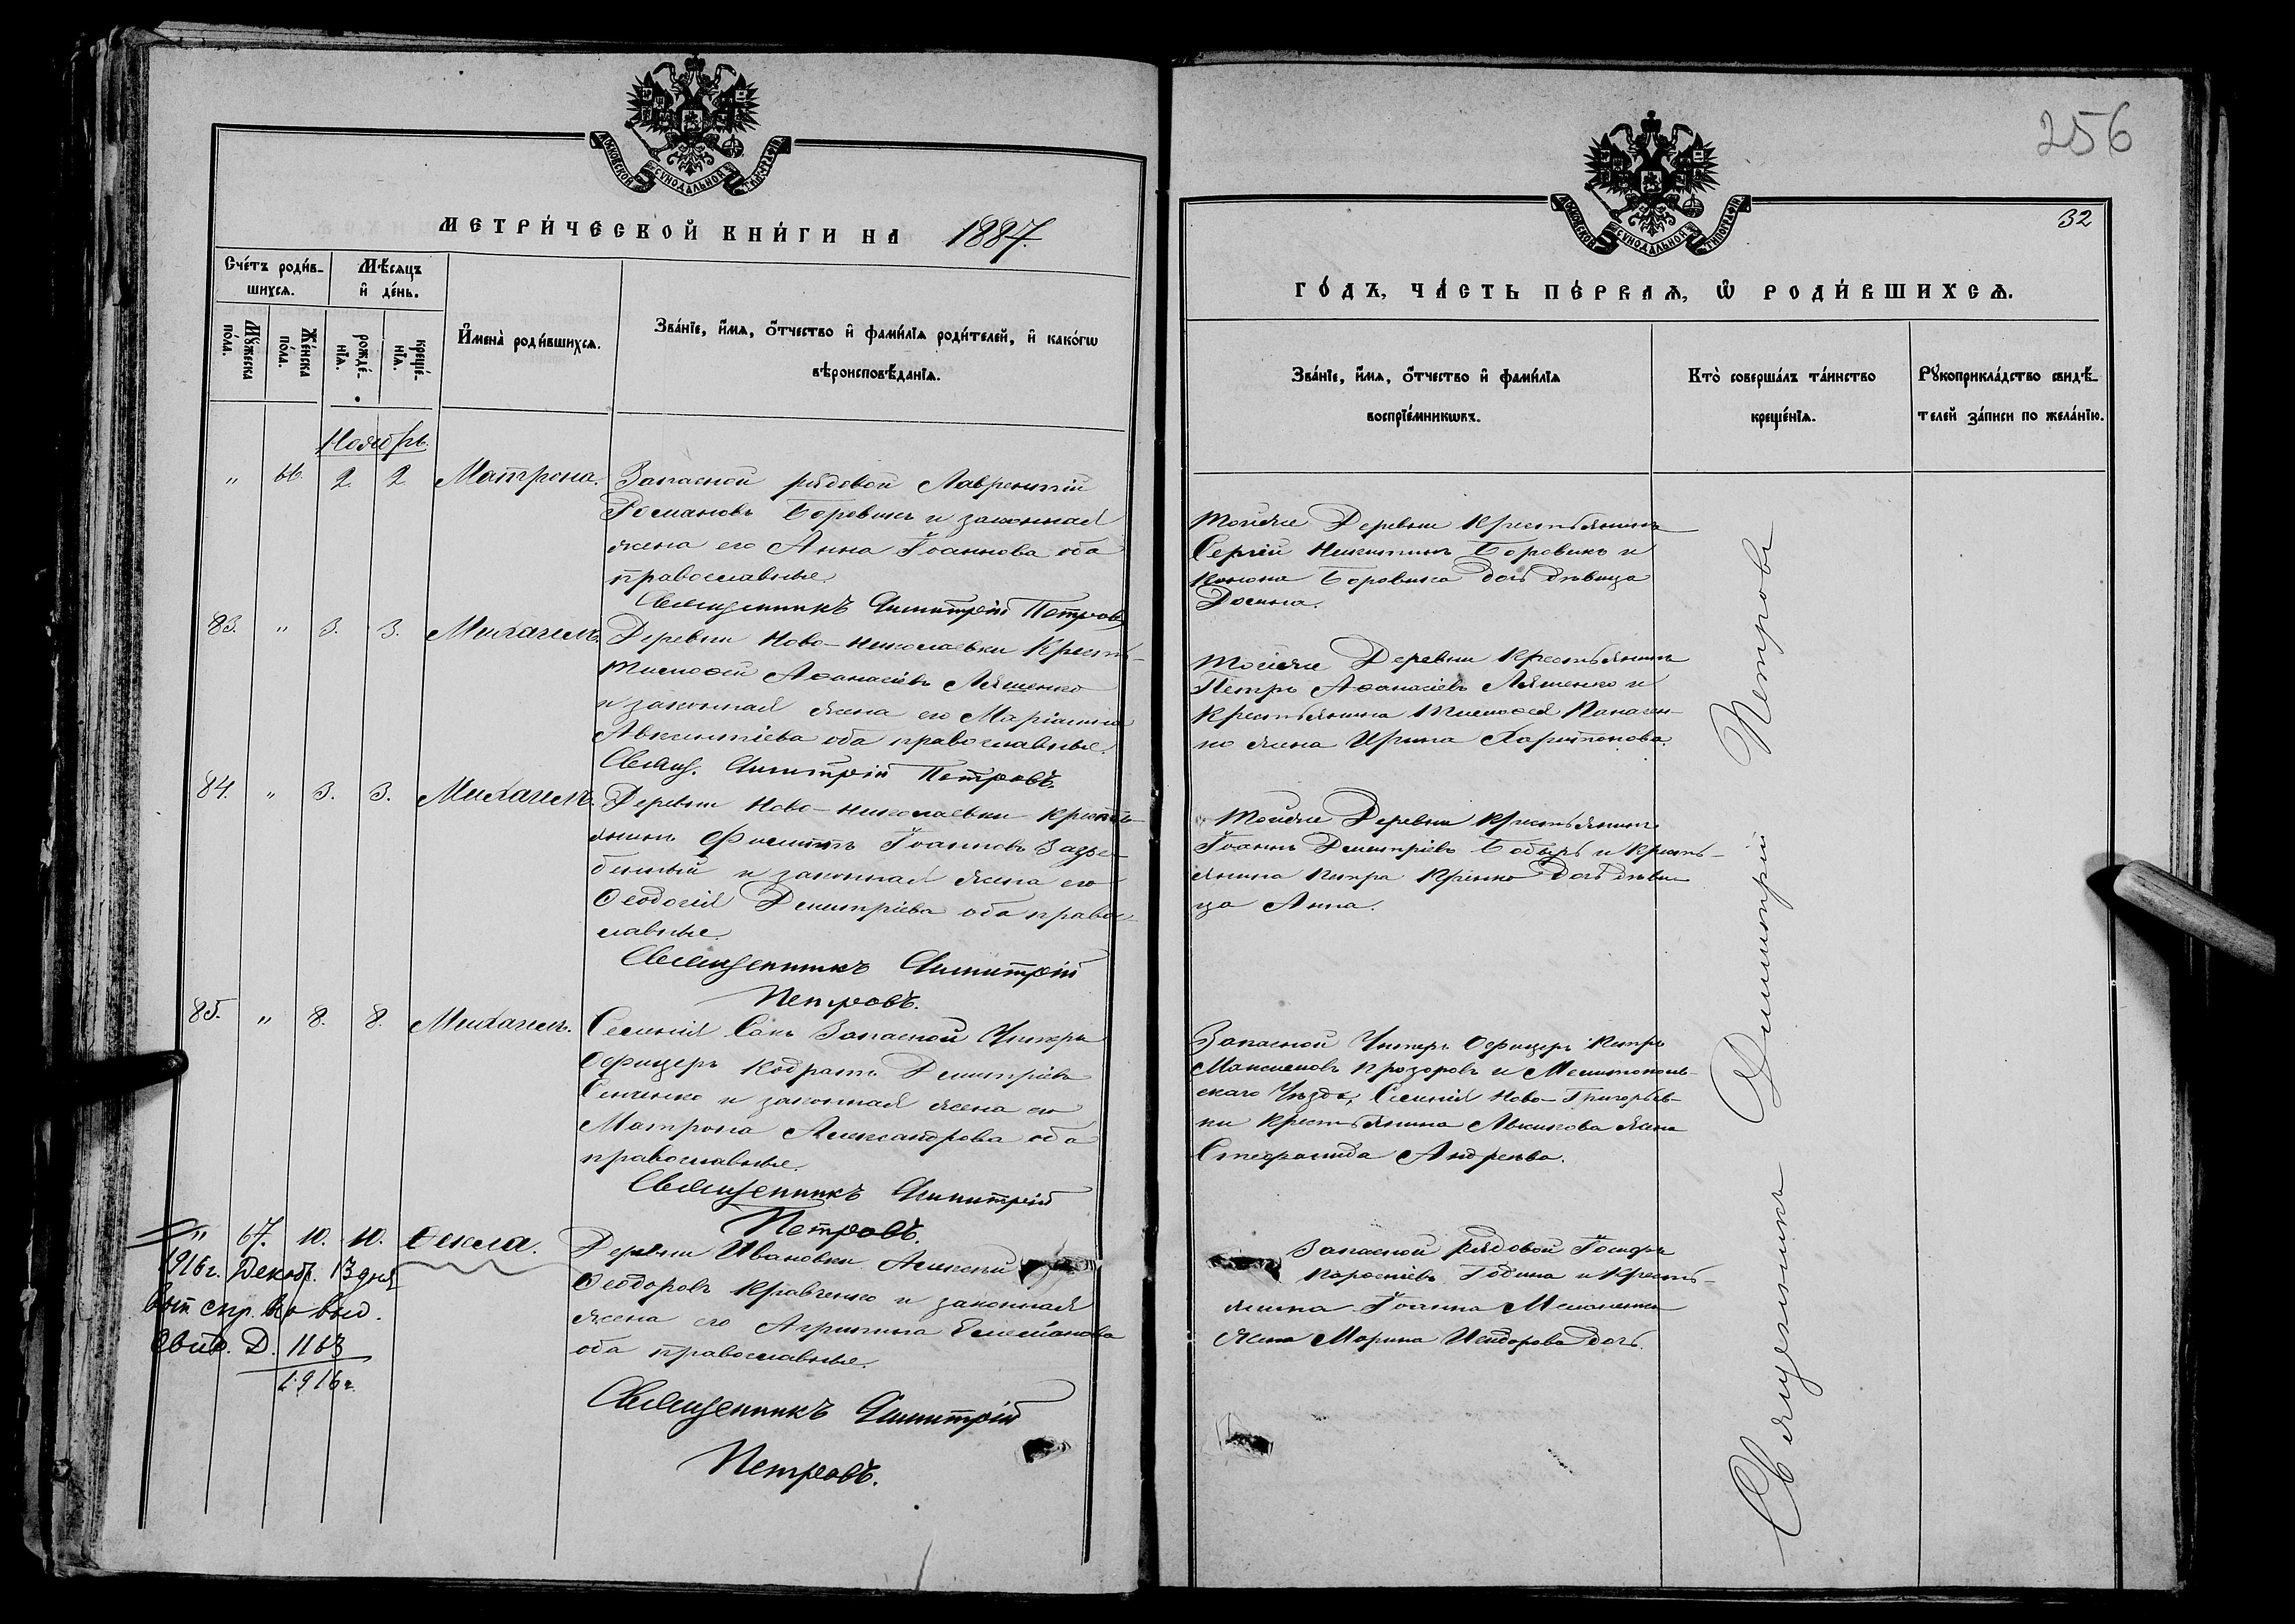 МОСКОВСКОЙ СѴНОДАЛЬНОЙ ТИПОГРАФІИ
МЕТРИ́ЧЕСКОЙ КНИ́ГИ НА 1887.
Сче́тъ роди́в-
шихсѧ.
Мѣ́сѧцъ
и҆ де́нь.
И҆мена̀ роди́вшихсѧ.
Зва́нїе, и҆́мѧ, ѻ҆́тчество и҆ фами́лїѧ роди́телей, и҆ како́гѡ
вѣроисповѣ́данїѧ.
Мꙋ́жеска
по́ла.
Же́нска
по́ла.
рожде́-
нїѧ.
креще́-
нїѧ.
Ноябрь.
" 66. 2. 2 Матрона. Запасной рядовой Лаврентій
Романовъ Боровикъ и законная
жена его Анна Іоаннова оба
православные.
Священникъ Димитрій Петровъ
83. " 3. 3. Михаилъ. Деревни Ново-Николаевки Крест-
Тимофей Афанасіевъ Ляшенко
и законная жена его Маріамна
Авксентіева оба православные.
Свящ. Димитрій Петровъ.
84. " 3. 3. Михаилъ. Деревни Ново-Николаевки Кресть-
янинъ Филиппъ Іоанновъ
и законная жена его
Ѳеодосія Димитріева оба право-
славные.
Священникъ Димитрій
Петровъ.
85. " 8. 8. Михаилъ. Селенія Запасной Унтеръ
Офицеръ Кодратъ Димитріевъ
Сенченко и законная жена его
Матрона Александрова оба
православные.
Священникъ Димитрій
Петровъ.
" 67. 10. 10. Ѳекла. Деревни Ивановки Алексей
Ѳеодоровъ Кравченко и законная
жена его Агрипина Емеліанова
оба православные.
Священникъ Димитрій
Петровъ.
1916 г. Декаб. 13 дня
выд.
свид. Д. 1163
1916 г.
256
32
МОСКОВСКОЙ СѴНОДАЛЬНОЙ ТИПОГРАФІИ
ГО́ДЪ, ЧА́СТЬ ПЕ́РВАѦ, Ѽ РОДИ́ВШИХСѦ.
Зва́нїе, и҆́мѧ, ѻ҆́тчество и҆ фами́лїѧ
воспрїе́мникѡвъ.
Кто̀ соверша́лъ та́инство
креще́нїѧ.
Рꙋкоприкла́дство свидѣ́-
телей за́писи по жела́нїю.
Тойже Деревни Крестьянинъ
Сергій Никитинъ Боровикъ и
Боровика дочь девица
Тойже Деревни Крестьянинъ
Петръ Афанасіевъ Ляшенко и
Крестьянина Тимофея Паначен-
ко жена Ирина Харитонова.
Тойже Деревни Крестьянинъ
Іоаннъ Димитріевъ Бобырь и Кресть-
янина Петра дочь деви-
ца Анна.
Запасной Унтеръ Офицеръ Петръ
Максимовъ Прозоровъ и Мелитополь-
скаго Уѣзда, Селенія Ново-Григорьев-
ки Крестьянина жена
Стефанида Андреева.
Запасной рядовой
Година и Кресть-
янина Іоанна
жена Марина Исидорова дочь.
Священникъ Димитрій Петровъ